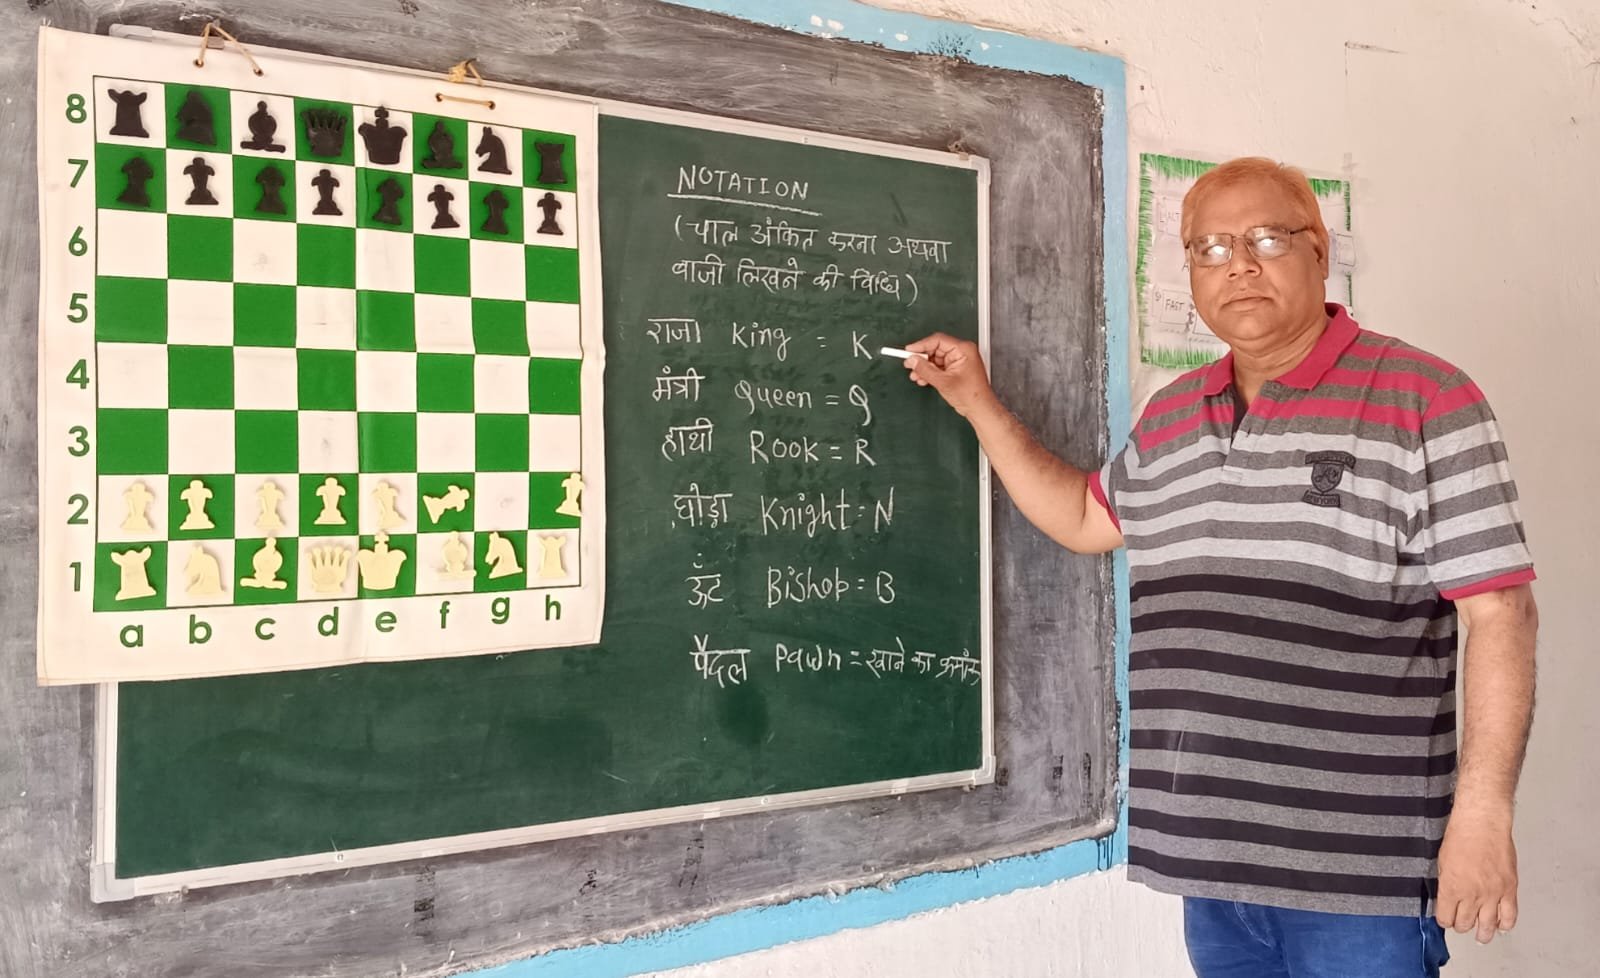 8
7
6
5
4
3
2
1
a b c d e f g h
NOTATION
(चाल अंकित करना अथवा
बाजी लिखने की विधि)
राजा King = K
मंत्री Queen = Q
हाथी ROOK = R
घोड़ा Knight = N
ऊँट Bishop = B
पैदल Pawn = खाने का क्रमाँक
FAST